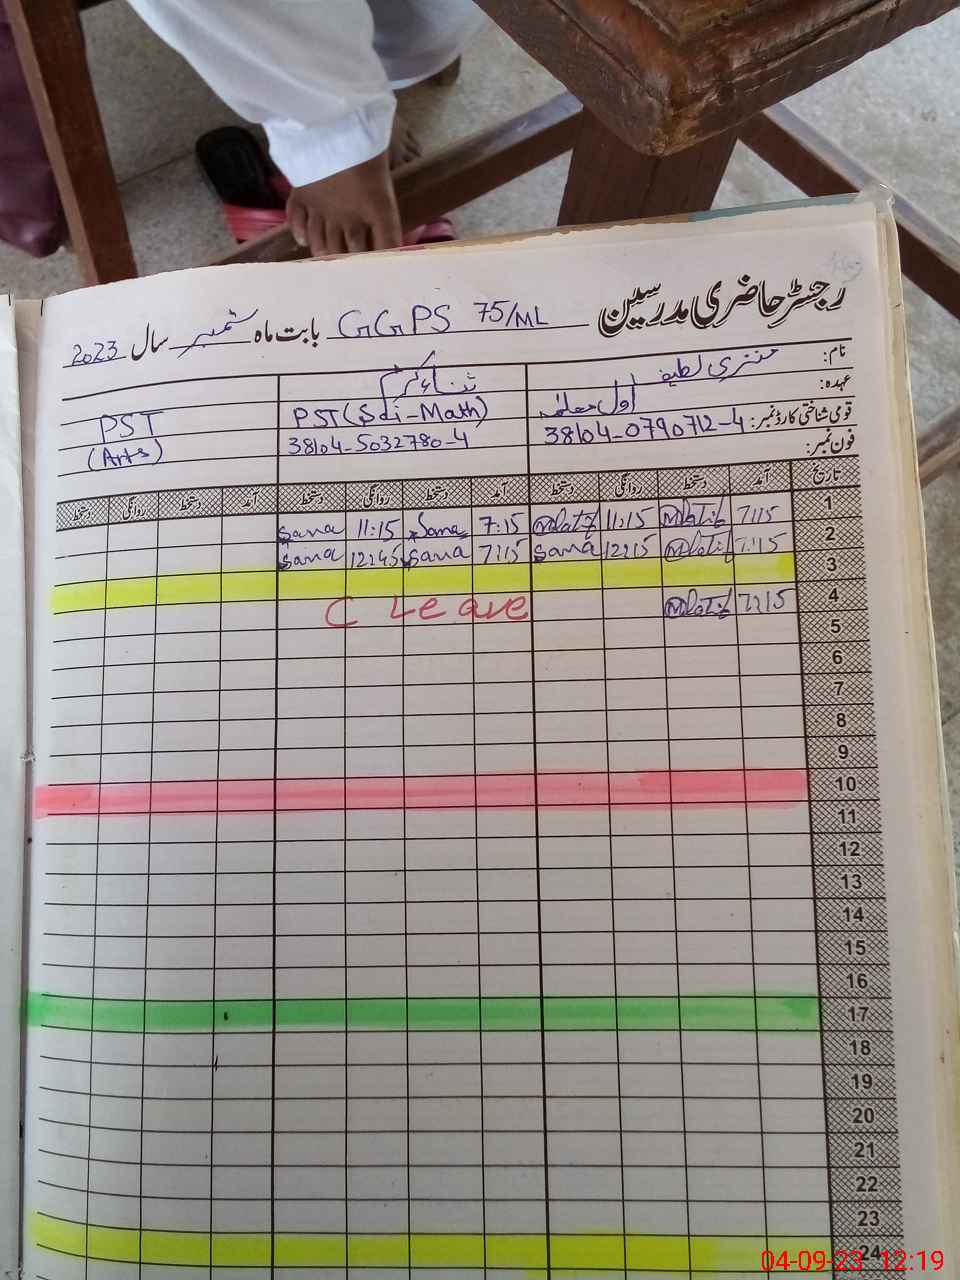 رجسٹر حاضری مدرسین GGPS 75/ML بابت ماہ ستمبر سال 2023
نام: لطیف ثناء کرم
عہدہ: اول معلمہ PST (Sci-Math) PST (Arts)
قومی شناختی کارڈ نمبر: 38104-0790712-4 38104-5032780-4
فون نمبر:
تاریخ آمد دستخط روانگی دستخط آمد دستخط روانگی دستخط آمد دستخط روانگی دستخط
1 7:15 MLatif 11:15 MLatif 7:15 Sana 11:15 Sana
2 7:15 MLatif 12:15 Sana 7:15 Sana 12:45 Sana
3
4 7:15 MLatif C Leave
5
6
7
8
9
10
11
12
13
14
15
16
17
18
19
20
21
22
23
24
04-09-23 12:19